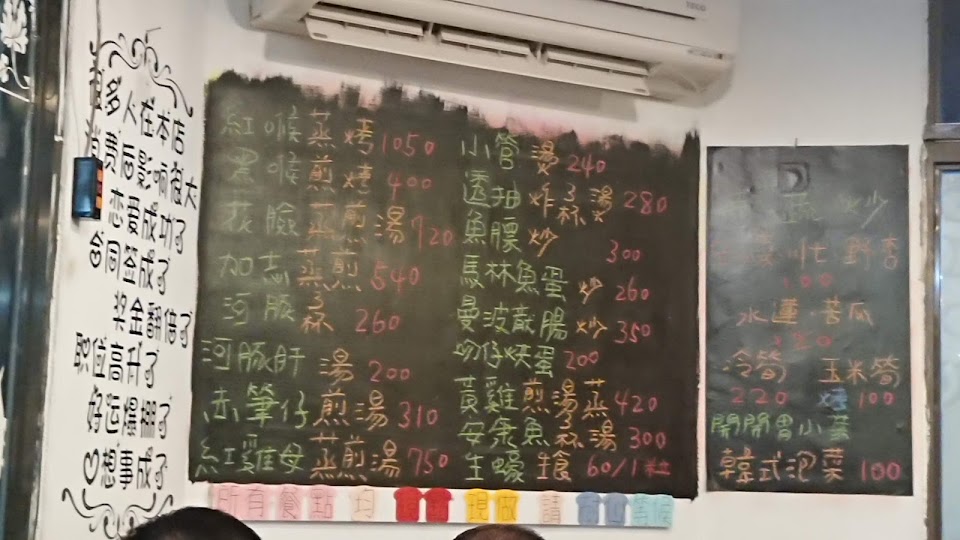 很多人在本店
消费后影响很大
恋爱成功了
合同签成了
奖金翻倍了
职位高升了
好运爆棚了
♡想事成了
紅喉 蒸 烤 1050
黑喉 煎 燒 400
花臉 蒸煎湯 720
加志 蒸煎 540
河豚 3杯 260
河豚肝 湯 200
赤筆仔 煎湯 310
紅雞母 蒸煎湯 750
小管 燙 240
透抽 炸3杯湯 280
魚腰 炒 300
馬林魚蛋 炒 260
曼波龍腸 炒 350
吻仔煎蛋 200
黃雞 煎湯蒸 420
安康魚 3杯湯 300
生蠔 生食 60/1粒
炒
100
水蓮·苦瓜
冷筍 玉米筍
220 烤 100
開開胃小菜
韓式泡菜 100
所有餐點 均 現做 請 等候